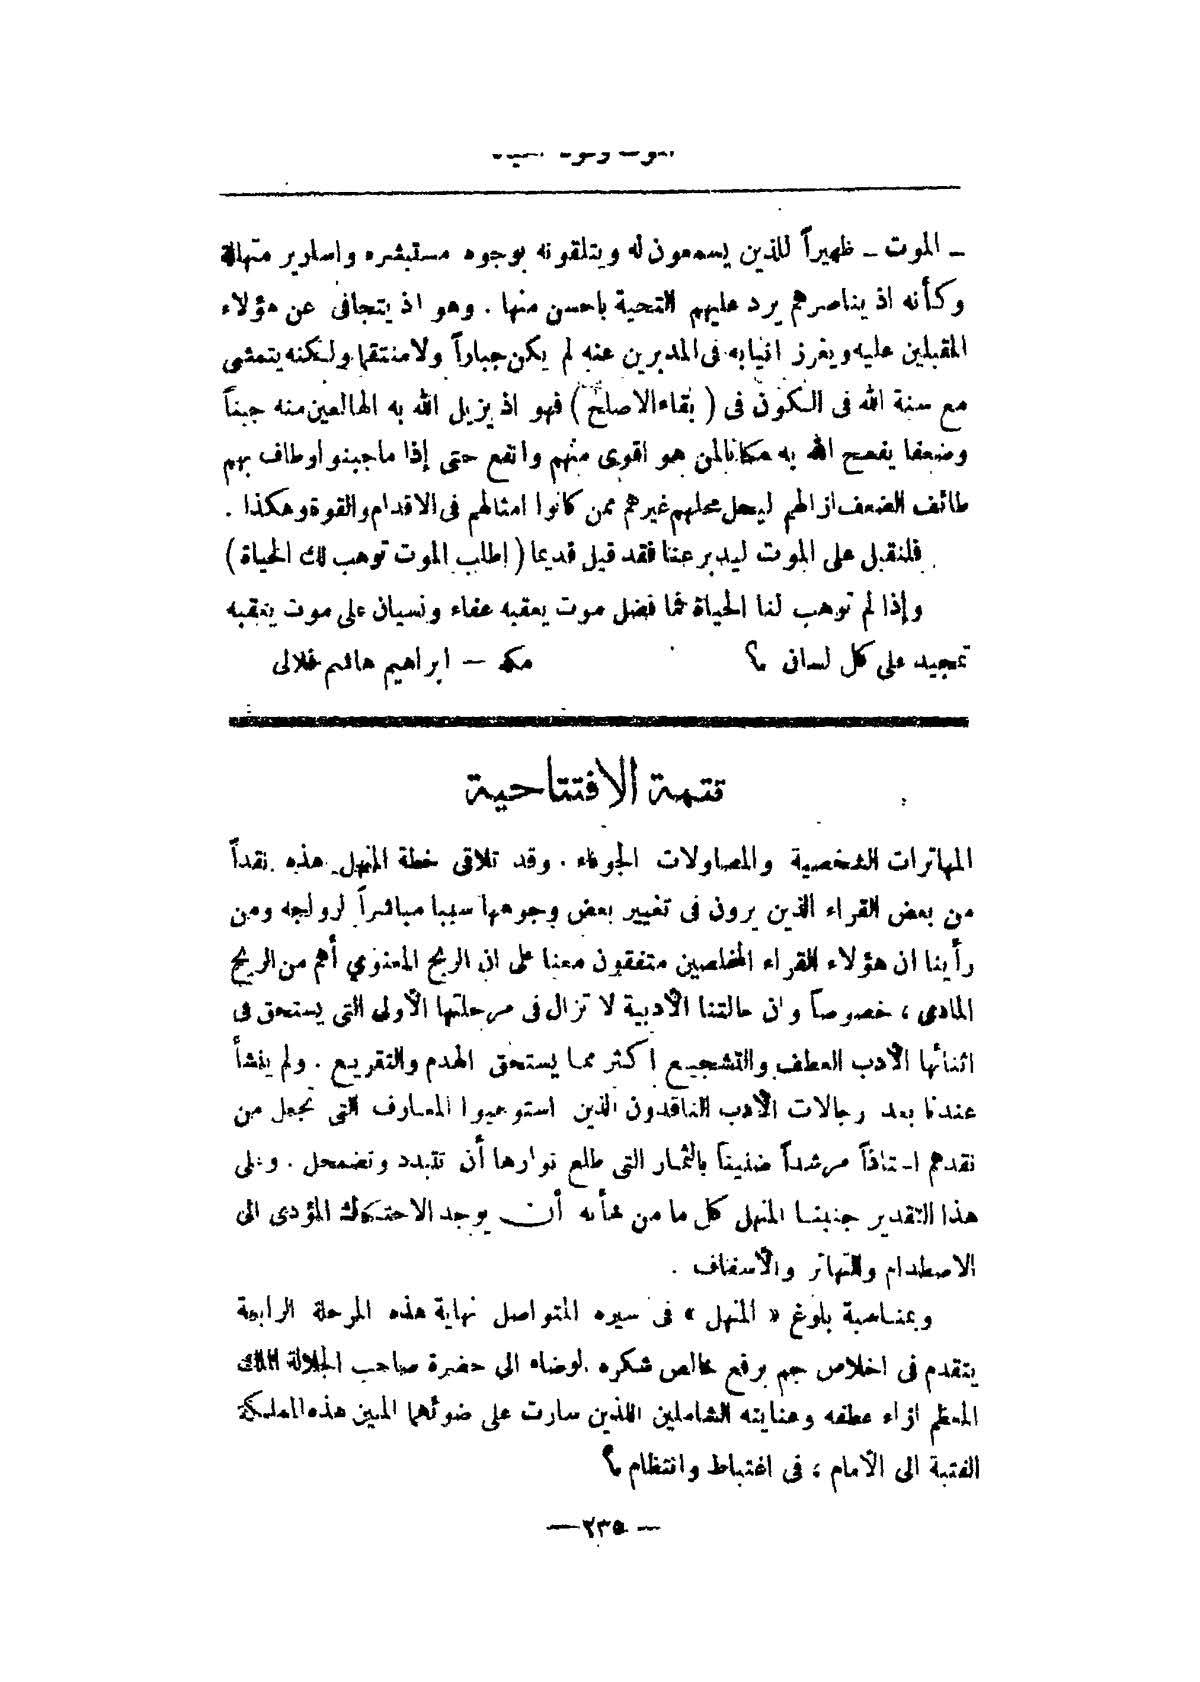 ـ الموت ـ ظهيراً للذين يسمعون له ويتلقونه بوجوه مستبشره واسارير متهللة
وكأنه اذ يناصرهم يرد عليهم التحية باحسن منها . وهو اذ يتجافى عن هؤلاء
المقبلين عليه ويغرز انيابه فى المدبرين عنه لم يكن جباراً ولا منتقما ولكنه يتمشى
مع سنة الله فى الكون فى ( بقاء الاصلح ) فهو اذ يزيل الله به الهالعين منه جبناً
وضعفا يفسح الله به مكانا لمن هو اقوى منهم وانفع حتى إذا ما جبنوا وطاف بهم
طائف الضعف ازالهم ليحل محلهم غيرهم ممن كانوا امثالهم فى الاقدام والقوة وهكذا .
فلنقبل على الموت ليدبر عنا فقد قيل قديما ( إطلب الموت توهب لك الحياة )
وإذا لم توهب لنا الحياة فما فضل موت يعقبه عفاء ونسيان على موت يعقبه
تمجيد على كل لسان ؟ مكة — ابراهيم هاشم فلالى
تتمة الافتتاحية
المهاترات الشخصية والمصاولات الجوفاء . وقد تلاقى خطة المنهل هذه نقداً
من بعض القراء الذين يرون فى تغيير بعض وجوهها سببا مباشراً لرواجه ومن
رأينا ان هؤلاء القراء المخلصين متفقون معنا على ان الربح المعنوي أهم من الربح
المادى ، خصوصاً وان حالتنا الأدبية لا تزال فى مرحلتها الأولى التى يستحق فى
اثنائها الأدب العطف والتشجيع اكثر مما يستحق الهدم والتقريع . ولم ينشأ
عندنا بعد رجالات الأدب الناقدون الذين استوعبوا المعارف التى تجعل من
نقدهم استاذاً مرشداً ضنيناً بالثمار التى طلع نوارها أن تتبدد وتضمحل . وعلى
هذا التقدير جنبنا المنهل كل ما من شأنه أن يوجد الاحتكاك المؤدى الى
الاصطدام والتهاتر والأسفاف .
وبمناسبة بلوغ « المنهل » فى سيره المتواصل نهاية هذه المرحلة الرابعة
يتقدم فى اخلاص جم برفع خالص شكره الوضاء الى حضرة صاحب الجلالة الملك
المعظم ازاء عطفه وعنايته الشاملين اللذين سارت على ضوئهما المبين هذه المملكة
الفتية الى الأمام ، فى اغتباط وانتظام ؟
— ٢٣٥ —